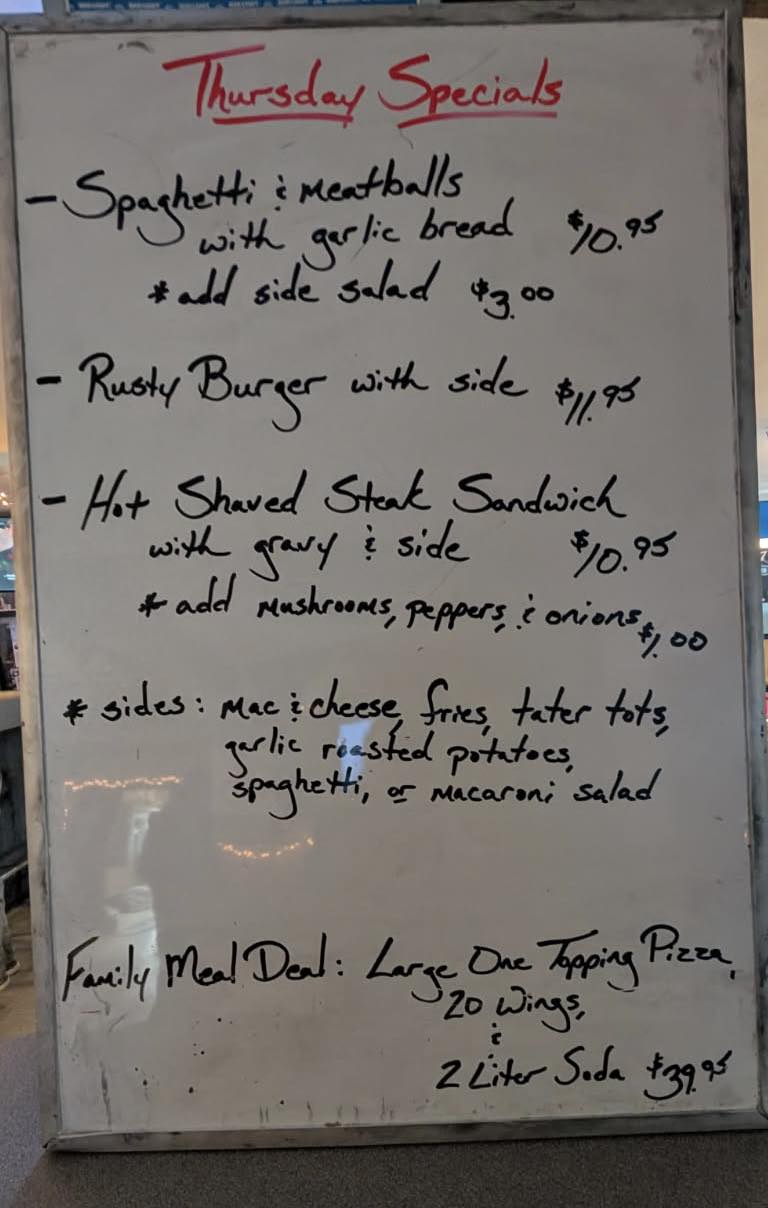 Thursday Specials
- Spaghetti & Meatballs
with garlic bread $10.95
* add side salad $3.00
- Rusty Burger with side $11.95
- Hot Shaved Steak Sandwich
with gravy & side $10.95
* add Mushrooms, peppers, & onions $1.00
* sides: Mac & cheese, fries, tater tots,
garlic roasted potatoes,
spaghetti, or macaroni salad
Family Meal Deal: Large One Topping Pizza,
20 Wings,
&
2 Liter Soda $39.95